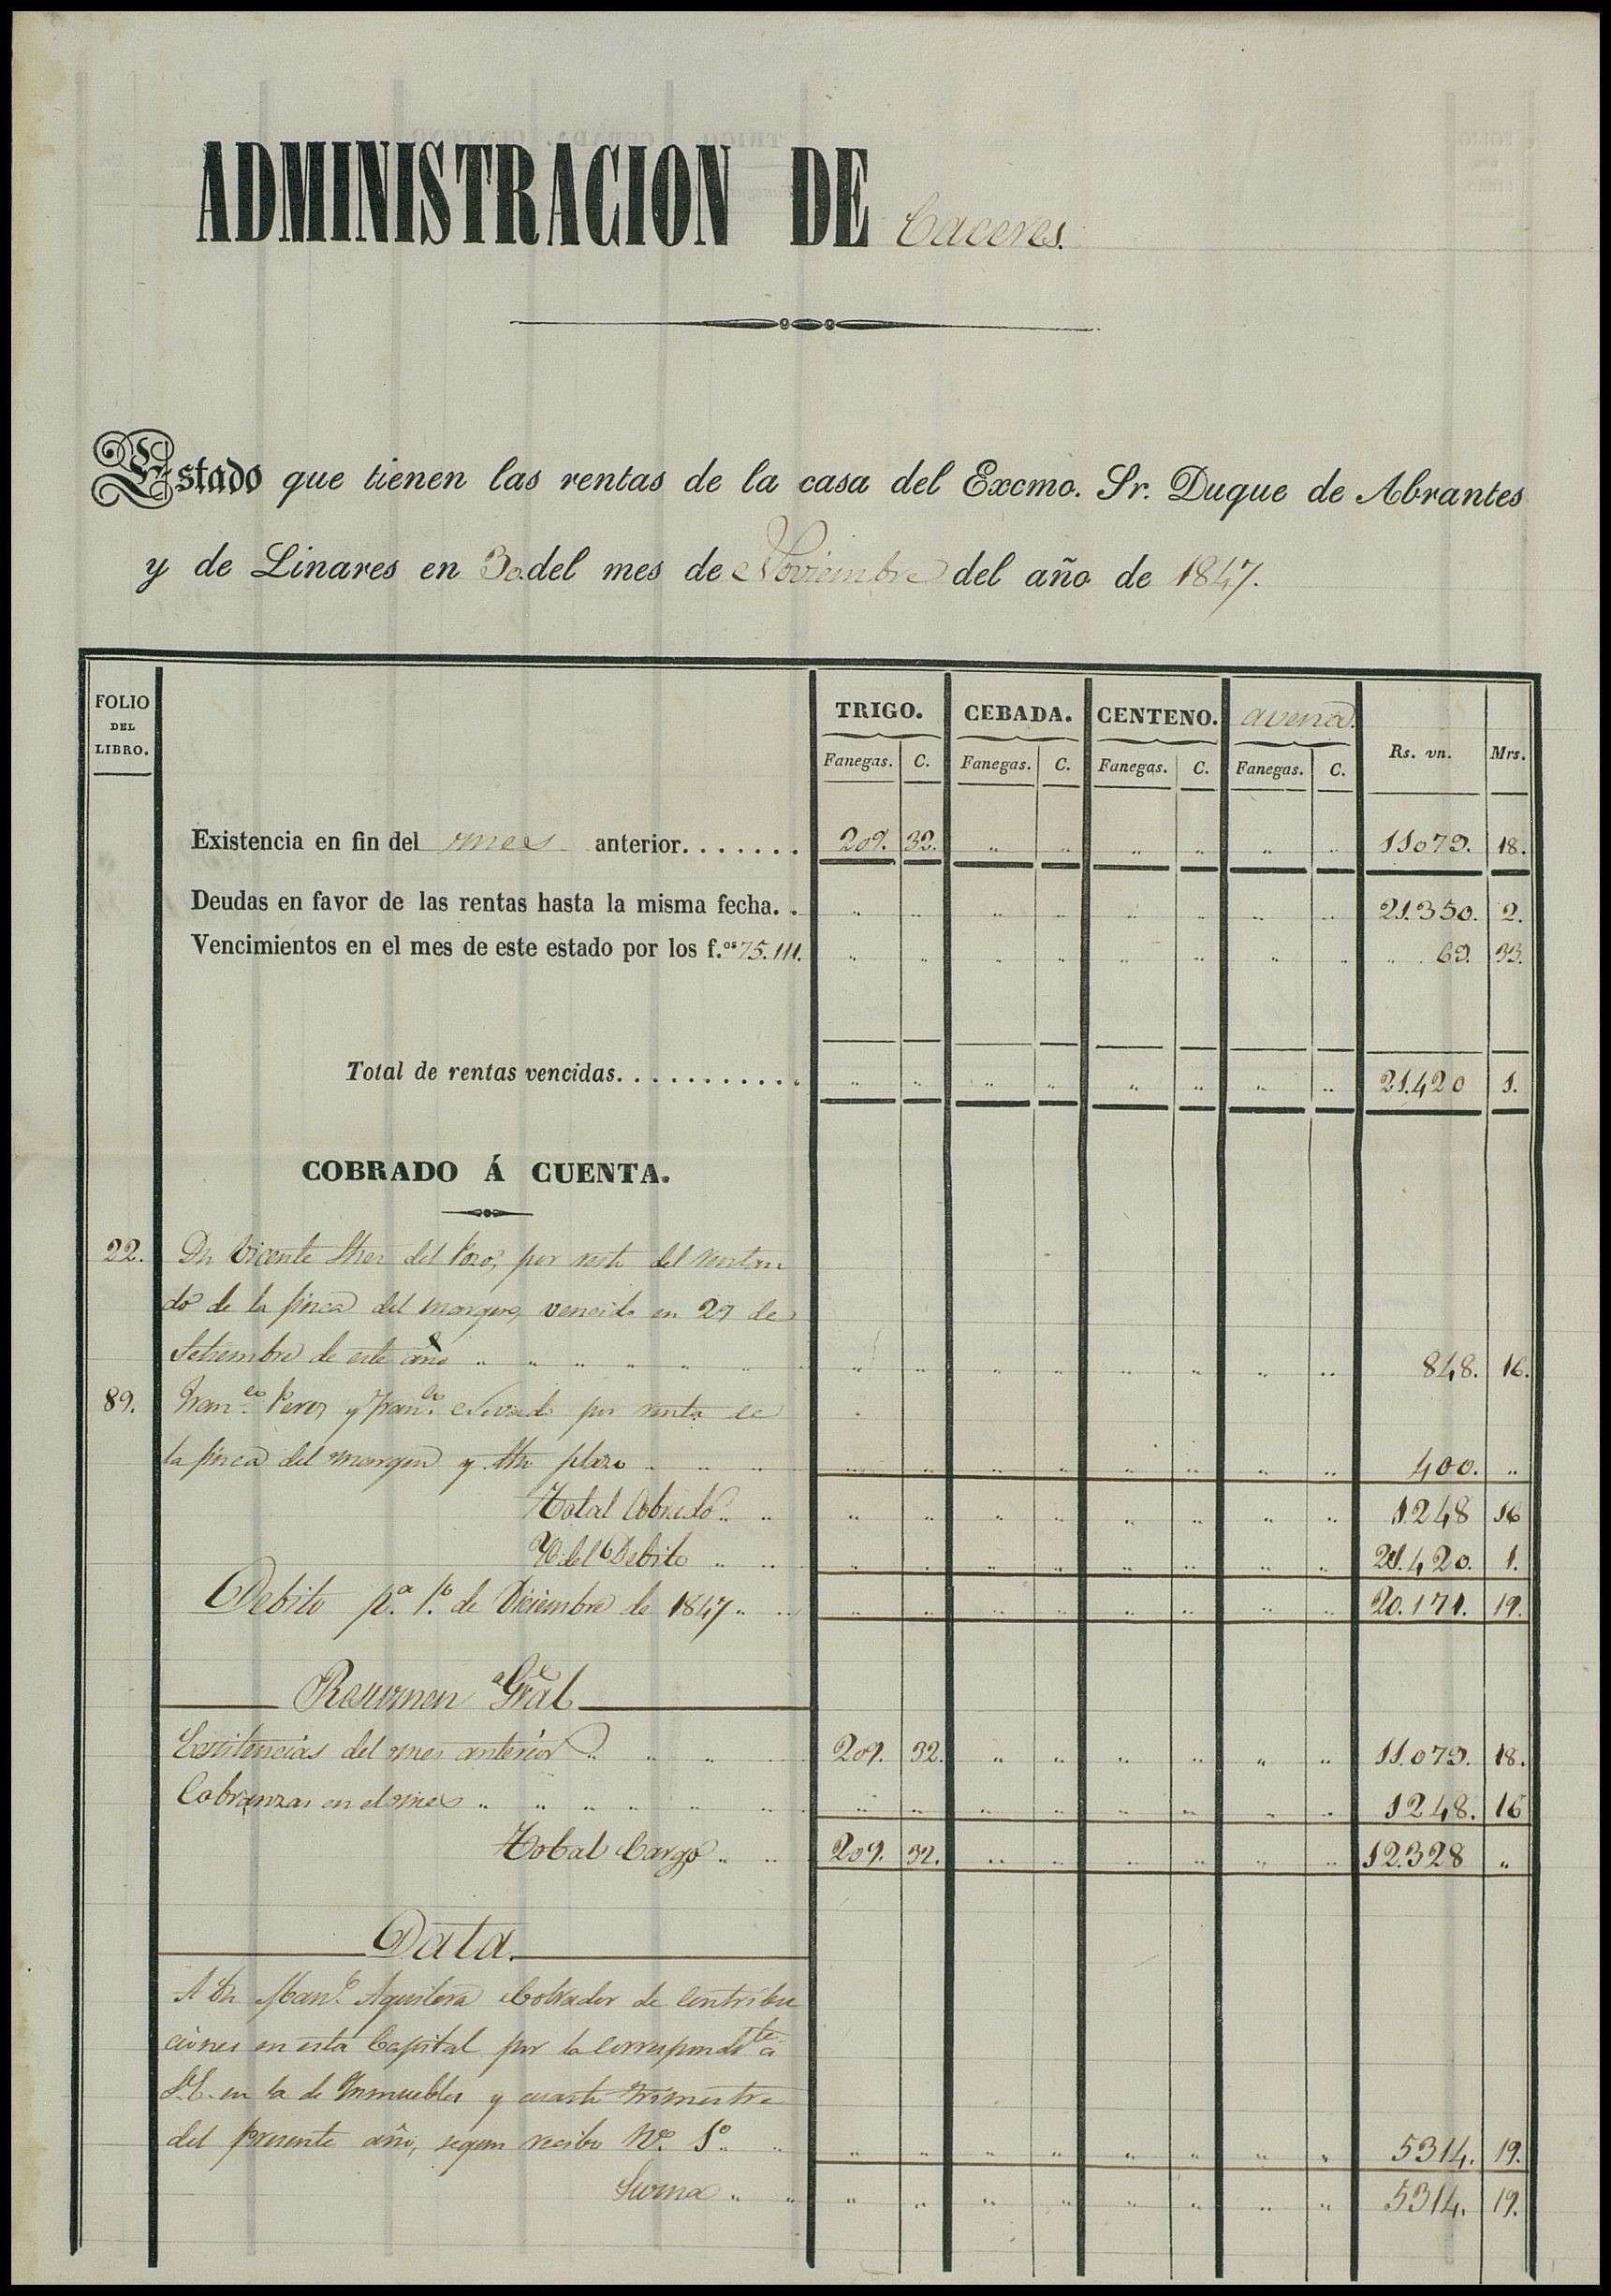 ADMINISTRACION DE Caceres.
Estado que tienen las rentas de la casa del Excmo. Sr. Duque de Abrantes
y de Linares en 30. del mes de Noviembre del año de 1847.
FOLIO DEL LIBRO. TRIGO. CEBADA. CENTENO. avena. Rs. vn. Mrs.
Fanegas. C. Fanegas. C. Fanegas. C. Fanegas. C.
Existencia en fin del mes anterior....... 209. 32. " " " " " " 11079. 18.
Deudas en favor de las rentas hasta la misma fecha. . " " " " " " " " 21.350. 2.
Vencimientos en el mes de este estado por los f.os 75. 111. " " " " " " " " " 69. 33.
Total de rentas vencidas........... " " " " " " " " 21.420 1.
COBRADO Á CUENTA.
22. Dn Vicente del Pozo, por resto del
do de la finca del margen, vencido en 29 de
Setiembre de este año " " " " " " " " " " " " " " " 848. 16.
89. Fran.co Perez y Fran.co por renta de
la finca del margen y plazo " " " " " " " " " " " 400. "
Total Cobrado " " " " " " " " " " 1.248 16
Debito " " " " " " " " " " 21.420. 1.
Debito p.a 1.o de Diciembre de 1847 " " " " " " " " " " 20.171. 19.
Resumen Gral
Existencias del mes anterior " " " " 209. 32. " " " " " " 11.079. 18.
Cobranzas en el mes " " " " " " " " " " " " " " 1248. 16
Total Cargo " " 209. 32. " " " " " " 12.328 "
Data.
A Dn Man.l Aguilera Cobrador de Contribu
ciones en esta Capital por la correspondte a
S.E. en la de Inmuebles y cuarto trimestre
del presente año, segun recibo No. 1o " " " " " " " " " " 5314. 19.
Suma " " " " " " " " " " 5314. 19.